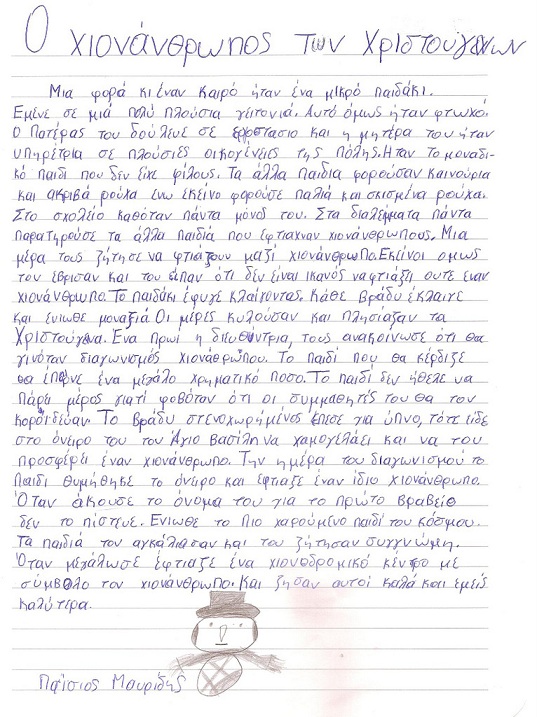 Ο χιονάνθρωπος των Χριστούγεννων
Μια φορά κι έναν καιρό ήταν ένα μικρό παιδάκι.
Εμενε σε μιά πολύ πλούσια γειτονιά. Αυτό όμως ήταν φτωχό.
Ο Πατέρας του δούλευε σε εργοστασιο και η μητέρα του ήταν
υπηρέτρια σε πλούσιες οικογένειες της πόλης. Ηταν το μοναδι-
κό παιδί που δεν είχε φίλους. Τα άλλα παιδιά φορούσαν καινούρια
και ακριβά ρούχα ενω εκείνο φορούσε παλιά και σκισμένα ρούχα.
Στο σχολείο καθόταν πάντα μόνος του. Στα διαλείμματα πάντα
παρατηρούσε τα άλλα παιδιά που έφτιαχναν χιονάνθρωπους. Μια
μέρα τους ζήτησε να φτιάξουν μαζί χιονάνθρωπο. Εκείνοι ομως
τον έβρισαν και του είπαν ότι δεν είναι ικανός να φτιάξη ουτε εναν
χιονάνθρωπο. Το παιδάκι έφυγε κλαίγοντας. Κάθε βράδυ έκλαιγε
και ένιωθε μοναξιά Οι μέρες κυλούσαν και πλησίαζαν τα
Χριστούγενα. Ένα πρωί η διευθύντρια, τους ανακοίνωσε ότι θα
γινόταν διαγωνισμός χιονάνθρωπου. Το παιδί που θα κέρδιζε
θα έπερνε ένα μεγάλο χρηματικό ποσο. Το παιδί δεν ήθελε να
πάρει μέρος γιατί φοβόταν ότι οι συμμαθητές του θα τον
κοροϊδεύαν. Το βράδυ στενοχωρημένος έπεσε για ύπνο, τότε είδε
στο όνειρο του τον Άγιο Βασίλη να χαμογελάει και να του
προσφέρει έναν χιονάνθρωπο. Την ημέρα του διαγωνισμού το
παιδί θυμήθηκε το όνειρο και έφτιαξε έναν ίδιο χιονάνθρωπο.
Όταν άκουσε το όνομα του για το πρώτο βραβείο
δεν το πίστευε. Ενιωθε το πιο χαρούμενο παιδί του κόσμου.
Τα παιδιά τον αγκάλιασαν και του ζήτησαν συγγνώμη.
Όταν μεγάλωσε έφτιαξε ένα χιονοδρομικό κέντρο με
σύμβολο τον χιονάνθρωπο. Και ζησαν αυτοί καλά και εμείς
καλύτερα.
Παΐσιος Μαυρίδης